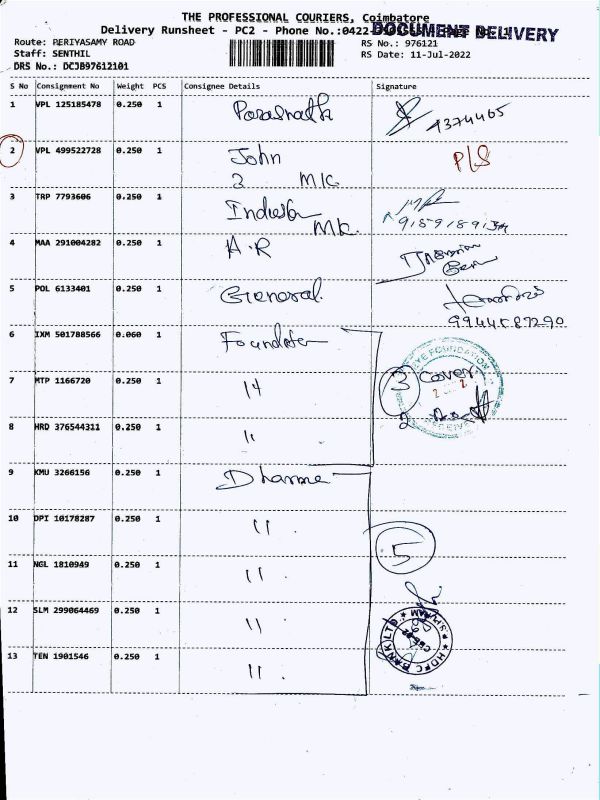 THE PROFESSIONAL COURIERS, Coimbatore
Delivery Runsheet - PC2 - Phone No.:0422
DOCUMENT DELIVERY
Route: PERIYASAMY ROAD
RS No.: 976121
Staff: SENTHIL
RS Date: 11-Jul-2022
DRS No.: DCJB97612101
S No Consignment No Weight PCS Consignee Details Signature
1 VPL 125185478 0.250 1 Parasnath 9374465
2 VPL 499522728 0.250 1 John P/S
3 MK
3 TRP 7793606 0.250 1 MK
4 MAA 291004282 0.250 1 A.R
5 POL 6133401 0.250 1 General
9944587290
6 IXM 501788566 0.060 1
7 MTP 1166720 0.250 1 11 3 Cover
8 HRD 376544311 0.250 1 11
9 KMU 3266156 0.250 1
10 DPI 10178287 0.250 1 11 5
11 NGL 1810949 0.250 1 11
12 SLM 299064469 0.250 1 11
HDFC BANK LTD
13 TEN 1901546 0.250 1 11